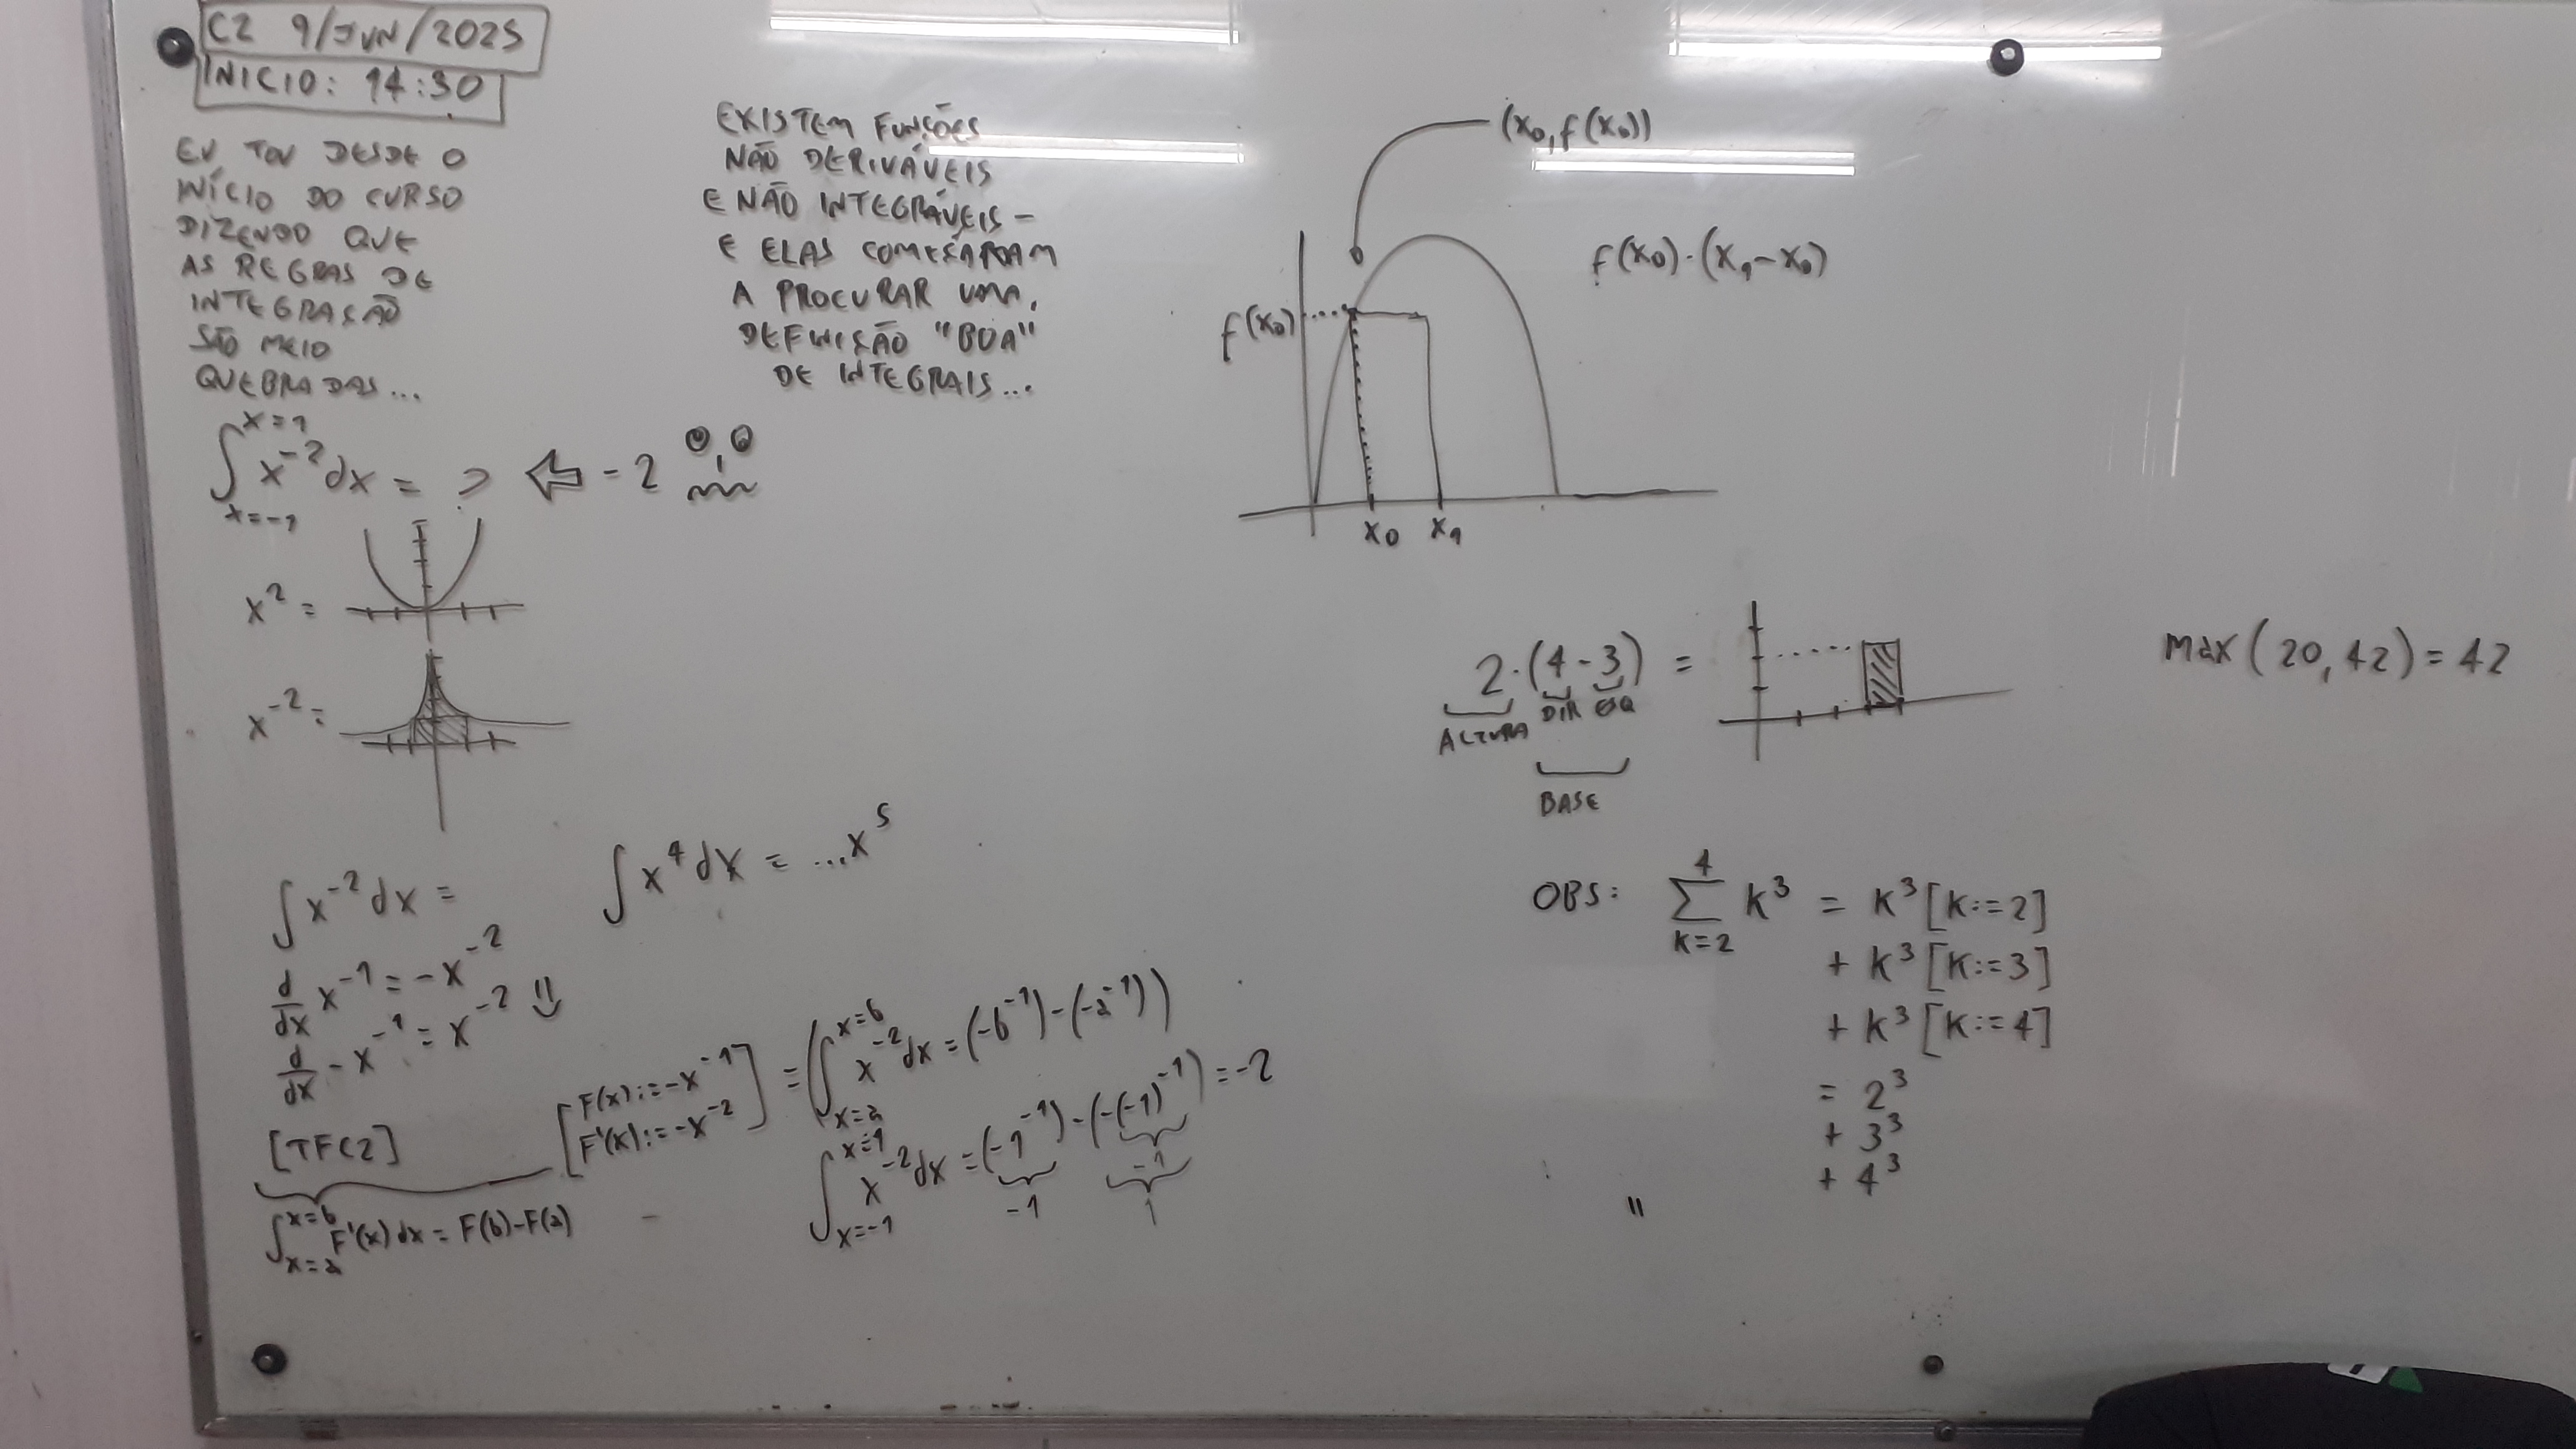 C2 9/JUN/2025
INICIO: 14:30
EU TOU DESDE O
INÍCIO DO CURSO
DIZENDO QUE
AS REGRAS DE
INTEGRAÇÃO
SÃO MEIO
QUEBRADAS...
∫_{x=-1}^{x=1} x^{-2} dx = ? ⇐ -2
x^2 =
x^{-2} =
∫ x^{-2} dx =
d/dx x^{-1} = -x^{-2}
d/dx -x^{-1} = x^{-2}
[TFC2]
∫_{x=a}^{x=b} F'(x) dx = F(b)-F(a)
EXISTEM FUNÇÕES
NÃO DERIVÁVEIS
E NÃO INTEGRÁVEIS -
E ELAS COMEÇARAM
A PROCURAR UMA
DEFINIÇÃO "BOA"
DE INTEGRAIS...
∫ x^4 dx = ...x^5
[F(x):=-x^{-1}
F'(x):=-x^{-2}]
= (∫_{x=a}^{x=b} x^{-2} dx = (-b^{-1})-(-a^{-1}))
∫_{x=-1}^{x=1} x^{-2} dx = (-1^{-1})-(-(-1)^{-1}) = -2
-1
-1
1
(x_0, f(x_0))
f(x_0)·(x_1-x_0)
f(x_0)
x_0 x_1
2·(4-3) =
ALTURA DIR ESQ
BASE
MAX(20,42)=42
OBS: ∑_{k=2}^{4} k^3 = k^3[k:=2]
+ k^3[k:=3]
+ k^3[k:=4]
= 2^3
+ 3^3
+ 4^3
"